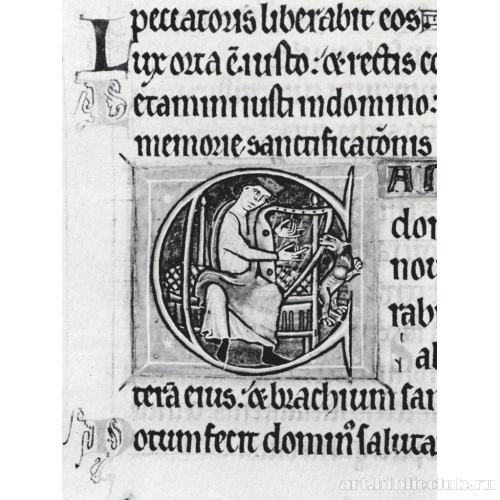 peccatoris liberabit eos
Lux orta ē iusto: & rectis co
Letamini iusti in domino:
memorie sanctificatōnis
CAN
dom
nou
rab
i
al
terā eius: & brachium san
Notum fecit dominꝰ saluta
art.biblioclub.ru